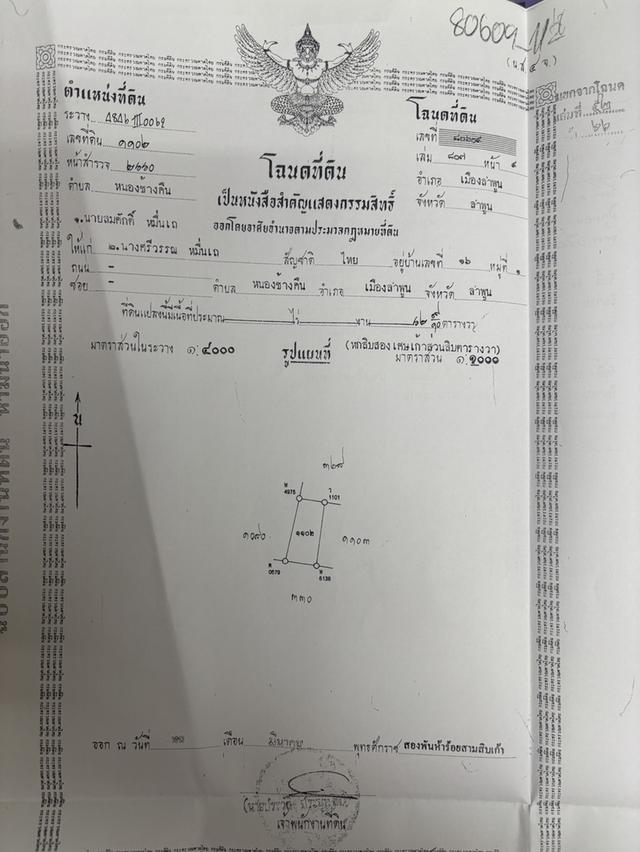 80609
(น.ส. ๔ จ.)
ตำแหน่งที่ดิน
ระวาง ๔๘๔๖ III ๐๐๖๒
เลขที่ดิน ๑๑๐๒
หน้าสำรวจ ๒๖๖๐
ตำบล หนองช้างคืน
โฉนดที่ดิน
เลขที่
เล่ม ๘๐๗ หน้า ๙
อำเภอ เมืองลำพูน
จังหวัด ลำพูน
แยกจากโฉนด
เล่มที่ ๕๒
๖๖
โฉนดที่ดิน
เป็นหนังสือสำคัญแสดงกรรมสิทธิ์
ออกโดยอาศัยอำนาจตามประมวลกฎหมายที่ดิน
๑.นายสมศักดิ์ หมื่นเถ
ให้แก่ ๒.นางศรีวรรณ หมื่นเถ สัญชาติ ไทย อยู่บ้านเลขที่ ๑๖ หมู่ที่ ๑
ถนน -
ซอย - ตำบล หนองช้างคืน อำเภอ เมืองลำพูน จังหวัด ลำพูน
ที่ดินแปลงนี้มีเนื้อที่ประมาณ ไร่ งาน ๖๒ ๙/๑๐ ตารางวา
(หกสิบสองเศษเก้าส่วนสิบตารางวา)
มาตราส่วนในระวาง ๑:๔๐๐๐ รูปแผนที่ มาตราส่วน ๑:๑๐๐๐
น
๓๒๘
4975
1101
๑๐๙๐
๑๑๐๒
๑๑๐๓
0679
6138
๓๓๐
ออก ณ วันที่ เดือน มีนาคม พุทธศักราช สองพันห้าร้อยสามสิบเก้า
เจ้าพนักงานที่ดิน